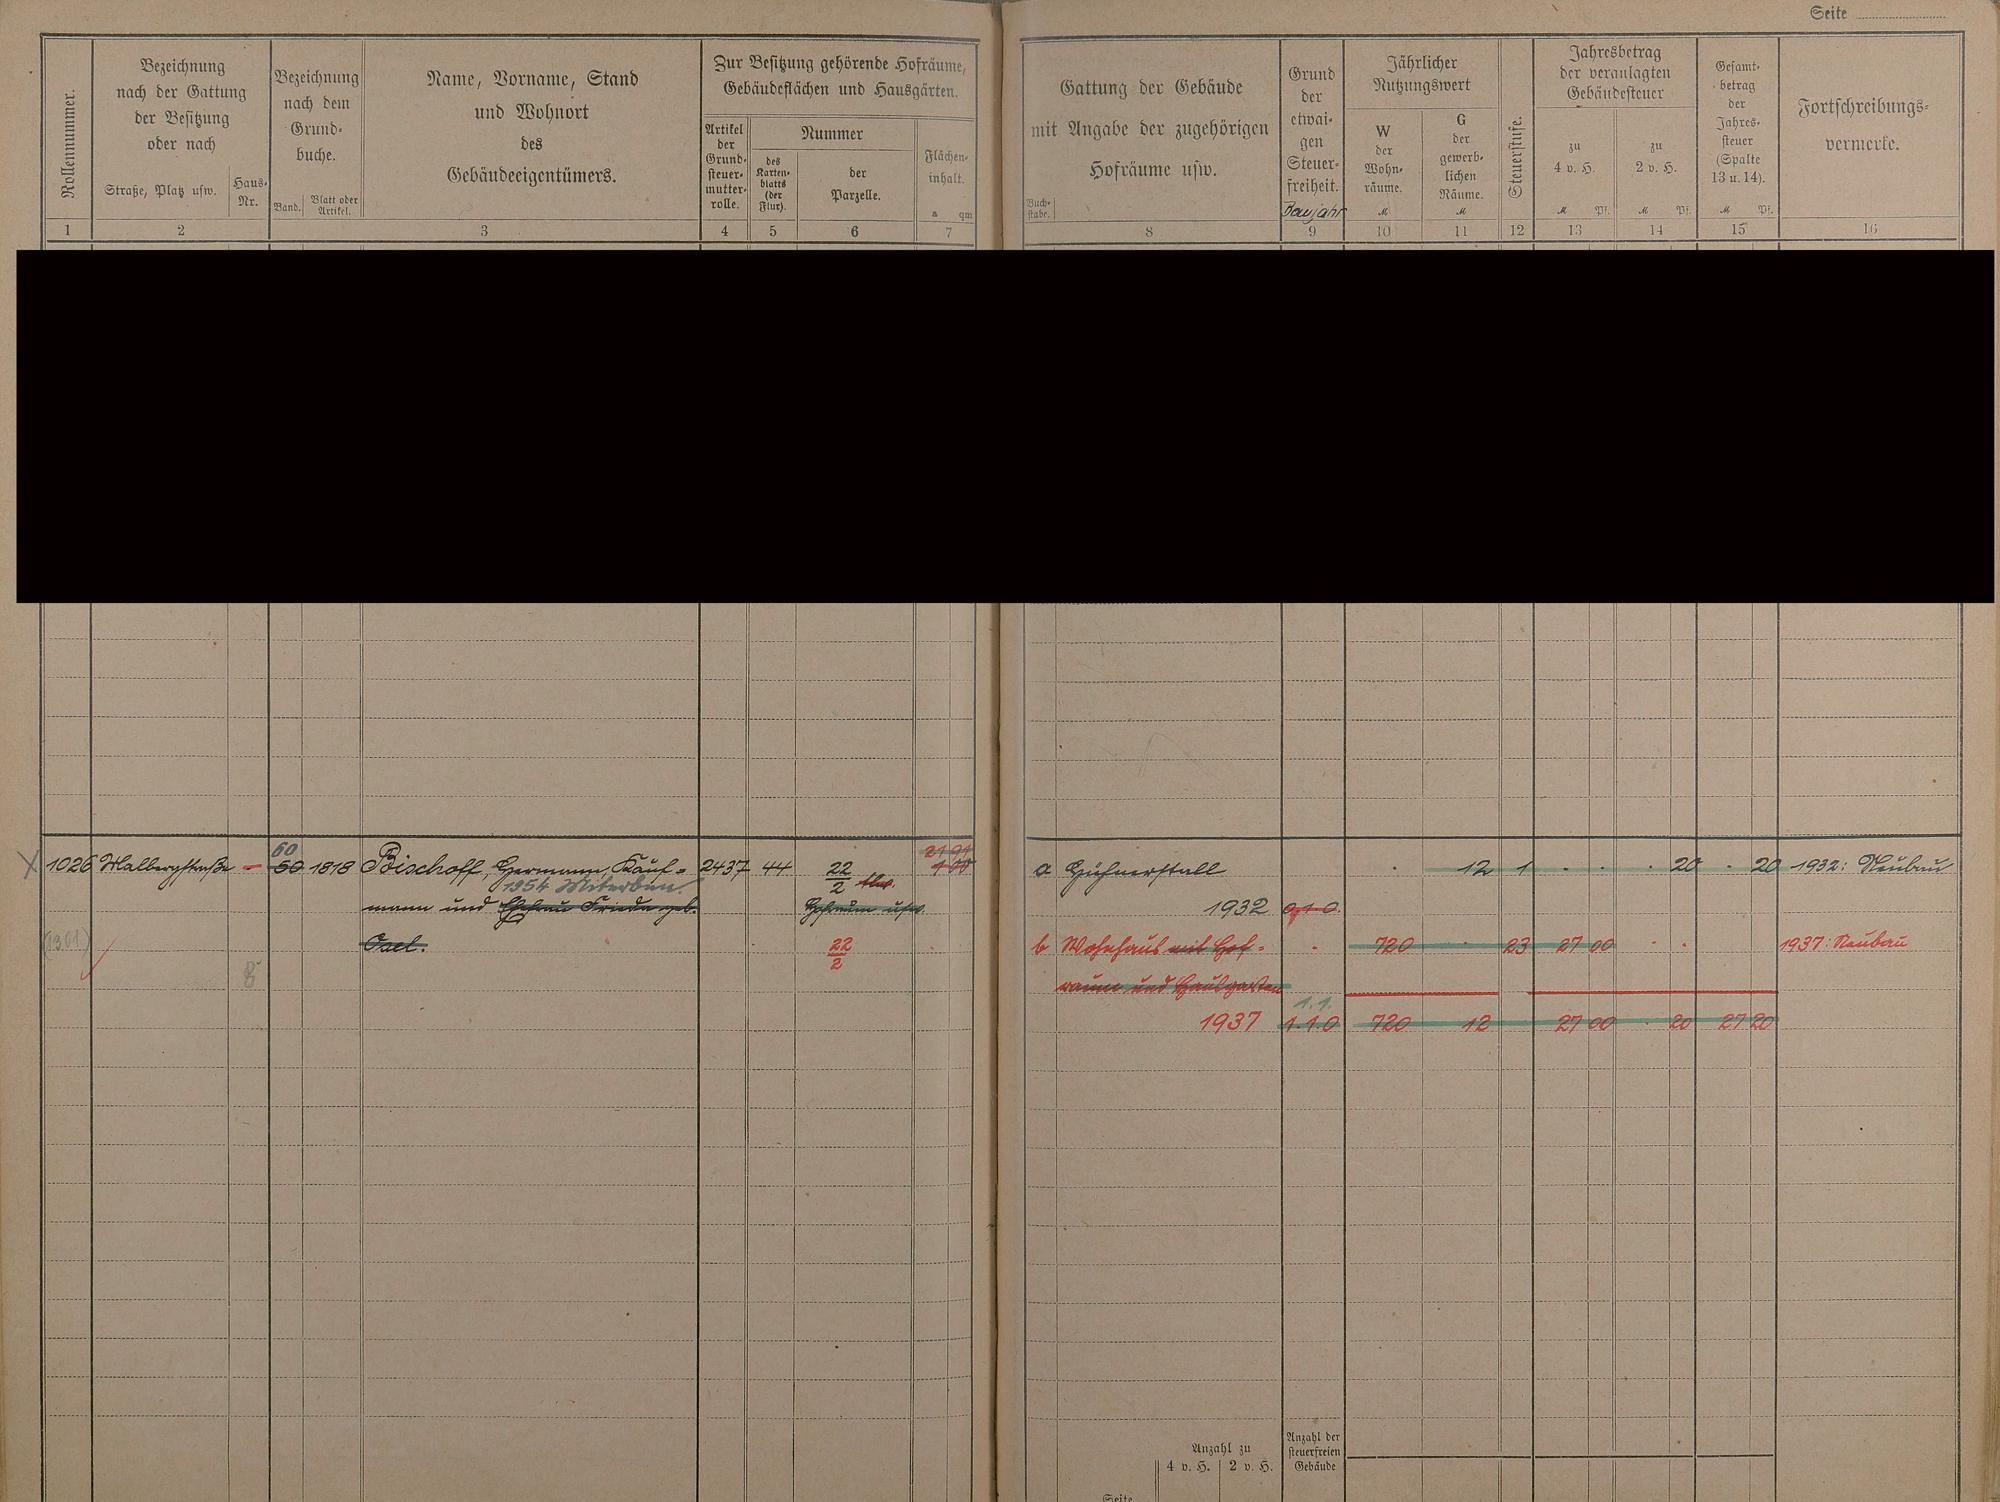 Seite
Rollennummer.
Bezeichnung
nach der Gattung
der Besitzung
oder nach
Straße, Platz usw.
Haus-
Nr.
Bezeichnung
nach dem
Grund-
buche.
Band.
Blatt oder
Artikel.
Name, Vorname, Stand
und Wohnort
des
Gebäudeeigentümers.
Zur Besitzung gehörende Hofräume,
Gebäudeflächen und Hausgärten.
Artikel
der
Grund-
steuer-
mutter-
rolle.
Nummer
des
Karten-
blatts
(der
Flur).
der
Parzelle.
Flächen-
inhalt.
a qm
1 2 3 4 5 6 7
Gattung der Gebäude
mit Angabe der zugehörigen
Hofräume usw.
Buch-
stabe.
Grund
der
etwai-
gen
Steuer-
freiheit.
Baujahr
Jährlicher
Nutzungswert
W
der
Wohn-
räume.
M
G
der
gewerb-
lichen
Räume.
M
Steuerstufe.
Jahresbetrag
der veranlagten
Gebäudesteuer
zu
4 v. H.
M Pf.
zu
2 v. H.
M Pf.
Gesamt-
betrag
der
Jahres-
steuer
(Spalte
13 u. 14).
M Pf.
Fortschreibungs-
vermerke.
8 9 10 11 12 13 14 15 16
60
21 91
X 1026 Malbergstraße – 50 1818 Bischoff, Hermann, Kauf- 2437 44 22/2 tlw. 1 00
1954 Miterben.
mann und Ehefrau Frieda geb. Hofraum usw.
(1301) 22/2
8
a Hühnerstall · 12 1 · · · 20 · 20 1932: Neubau
1932 0.1.0.
b Wohnhaus mit Hof- · 720 · 23 27 00 · · 1937: Neubau
raum und Hausgarten
1.1.
1937 1.1.0 720 12 27 00 · 20 27 20
Anzahl zu
4 v. H. 2 v. H.
Anzahl der
steuerfreien
Gebäude
Seite